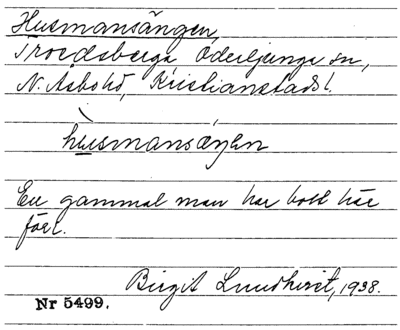 Husmansängen,
Troedsberga Öderljunga sn,
N. Åsbo hd, Kristianstads l.
husmansæŋen
En gammal man har bott här
förr.
Birgit Lundkvist, 1938.
Nr 5499.